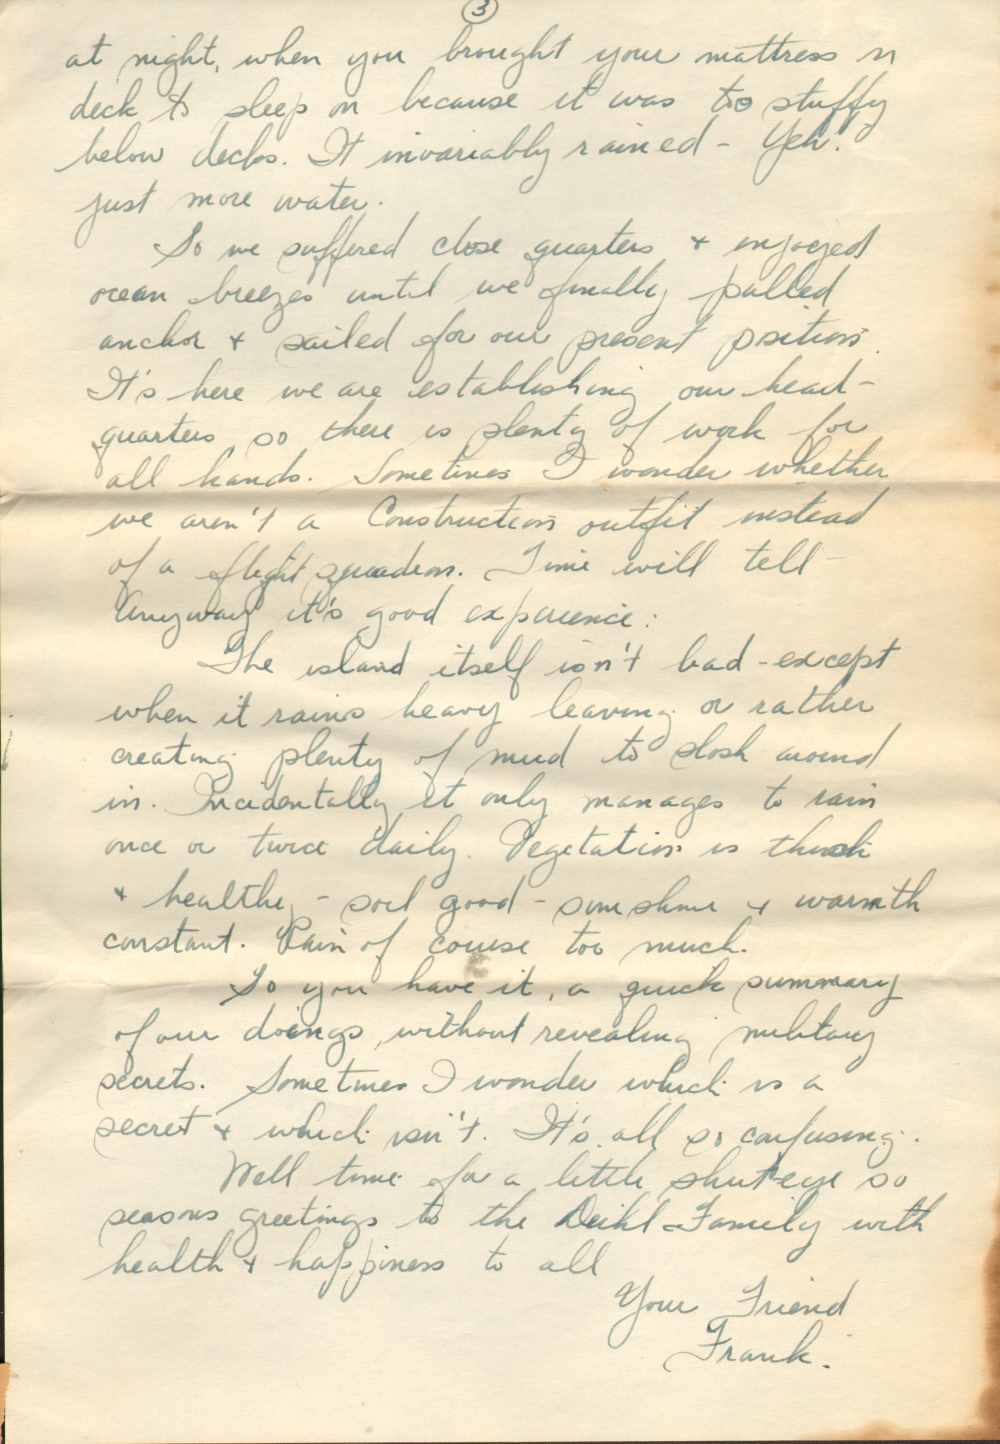 3
at night, when you brought your mattress on
deck to sleep on because it was too stuffy
below decks. It invariably rained - Yeh!
just more water.
So we suffered close quarters + enjoyed
ocean breezes until we finally pulled
anchor + sailed for our present position.
It's here we are establishing our head-
quarters so there is plenty of work for
all hands. Sometimes I wonder whether
we aren't a Construction outfit instead
of a flight squadron. Time will tell -
Anyway it's good experience:
The island itself isn't bad - except
when it rains heavy leaving or rather
creating plenty of mud to slosh around
in. Incidentally it only manages to rain
once or twice daily. Vegetation is thick
+ healthy - soil good - sunshine + warmth
constant. Rain of course too much.
So you have it, a quick summary
of our doings, without revealing military
secrets. Sometimes I wonder which is a
secret + which isn't. It's all so confusing.
Well time for a little shut-eye so
seasons greetings to the Deihl Family with
health + happiness to all
Your Friend
Frank.